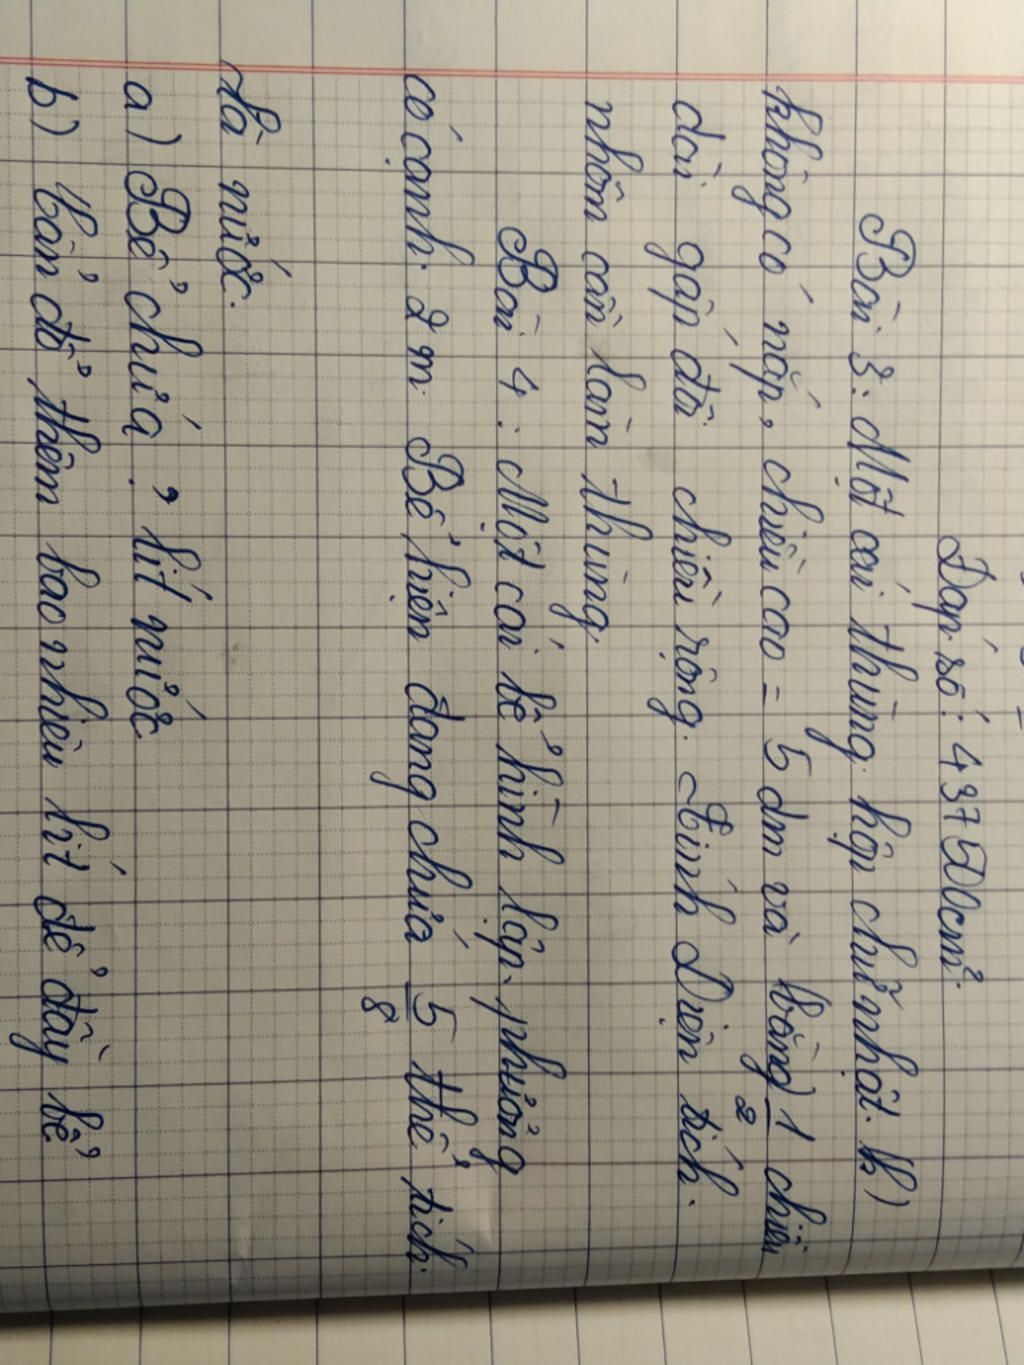 Đáp số: 43750cm².
Bài 3: Một cái thùng hộp chữ nhật. k)
không có nắp, chiều cao = 5 dm và bằng 1/2 chiều
dài gấp đôi chiều rộng. Tính Diện tích.
nhôm cần làm thùng.
Bài 4: Một cái bể hình lập phương
có cạnh 2 m. Bể hiện đang chứa 5/8 thể tích
là nước.
a) Bể chứa ? lít nước
b) Cần đổ thêm bao nhiêu lít để đầy bể